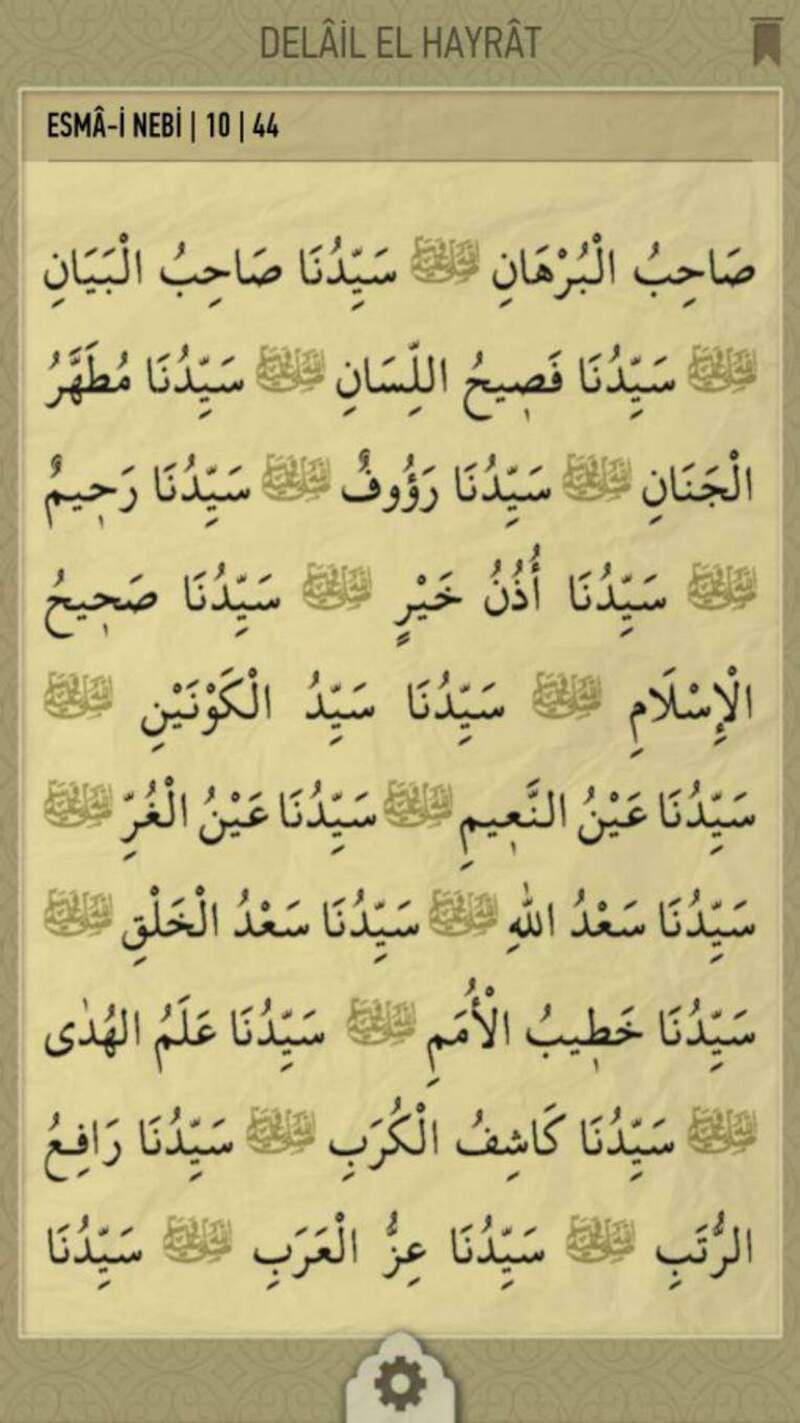 DELÂİL EL HAYRÂT
ESMÂ-İ NEBİ | 10 | 44
صَاحِبُ الْبُرْهَانِ ﷺ سَيِّدُنَا صَاحِبُ الْبَيَانِ
ﷺ سَيِّدُنَا فَصِيحُ اللِّسَانِ ﷺ سَيِّدُنَا مُطَهَّرُ
الْجَنَانِ ﷺ سَيِّدُنَا رَؤُوفٌ ﷺ سَيِّدُنَا رَحِيمٌ
ﷺ سَيِّدُنَا أُذُنُ خَيْرٍ ﷺ سَيِّدُنَا صَحِيحُ
الْإِسْلَامِ ﷺ سَيِّدُنَا سَيِّدُ الْكَوْنَيْنِ ﷺ
سَيِّدُنَا عَيْنُ النَّعِيمِ ﷺ سَيِّدُنَا عَيْنُ الْغُرِّ ﷺ
سَيِّدُنَا سَعْدُ اللهِ ﷺ سَيِّدُنَا سَعْدُ الْخَلْقِ ﷺ
سَيِّدُنَا خَطِيبُ الْأُمَمِ ﷺ سَيِّدُنَا عَلَمُ الْهُدٰى
ﷺ سَيِّدُنَا كَاشِفُ الْكُرَبِ ﷺ سَيِّدُنَا رَافِعُ
الرُّتَبِ ﷺ سَيِّدُنَا عِزُّ الْعَرَبِ ﷺ سَيِّدُنَا